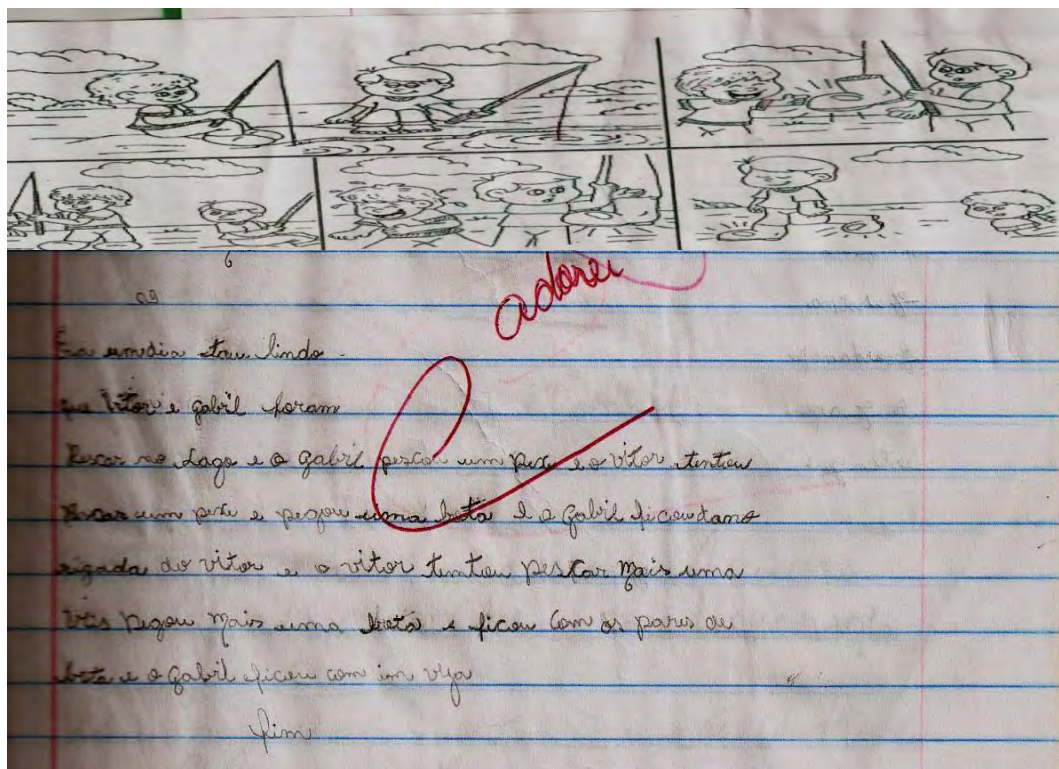 6
adorei
Era umdia tau lindo
que Vitor e gabril foram
Pescar no Lago e o gabril pescou um pexe e o vitor tentou
Pescar um pexe e pegou uma bota e o Gabril ficou dano
rizada do vitor e o vitor tentou pescar mais uma
veis pegou mais uma bota e ficou com os pares de
bota e o gabril ficou com inveja
fim